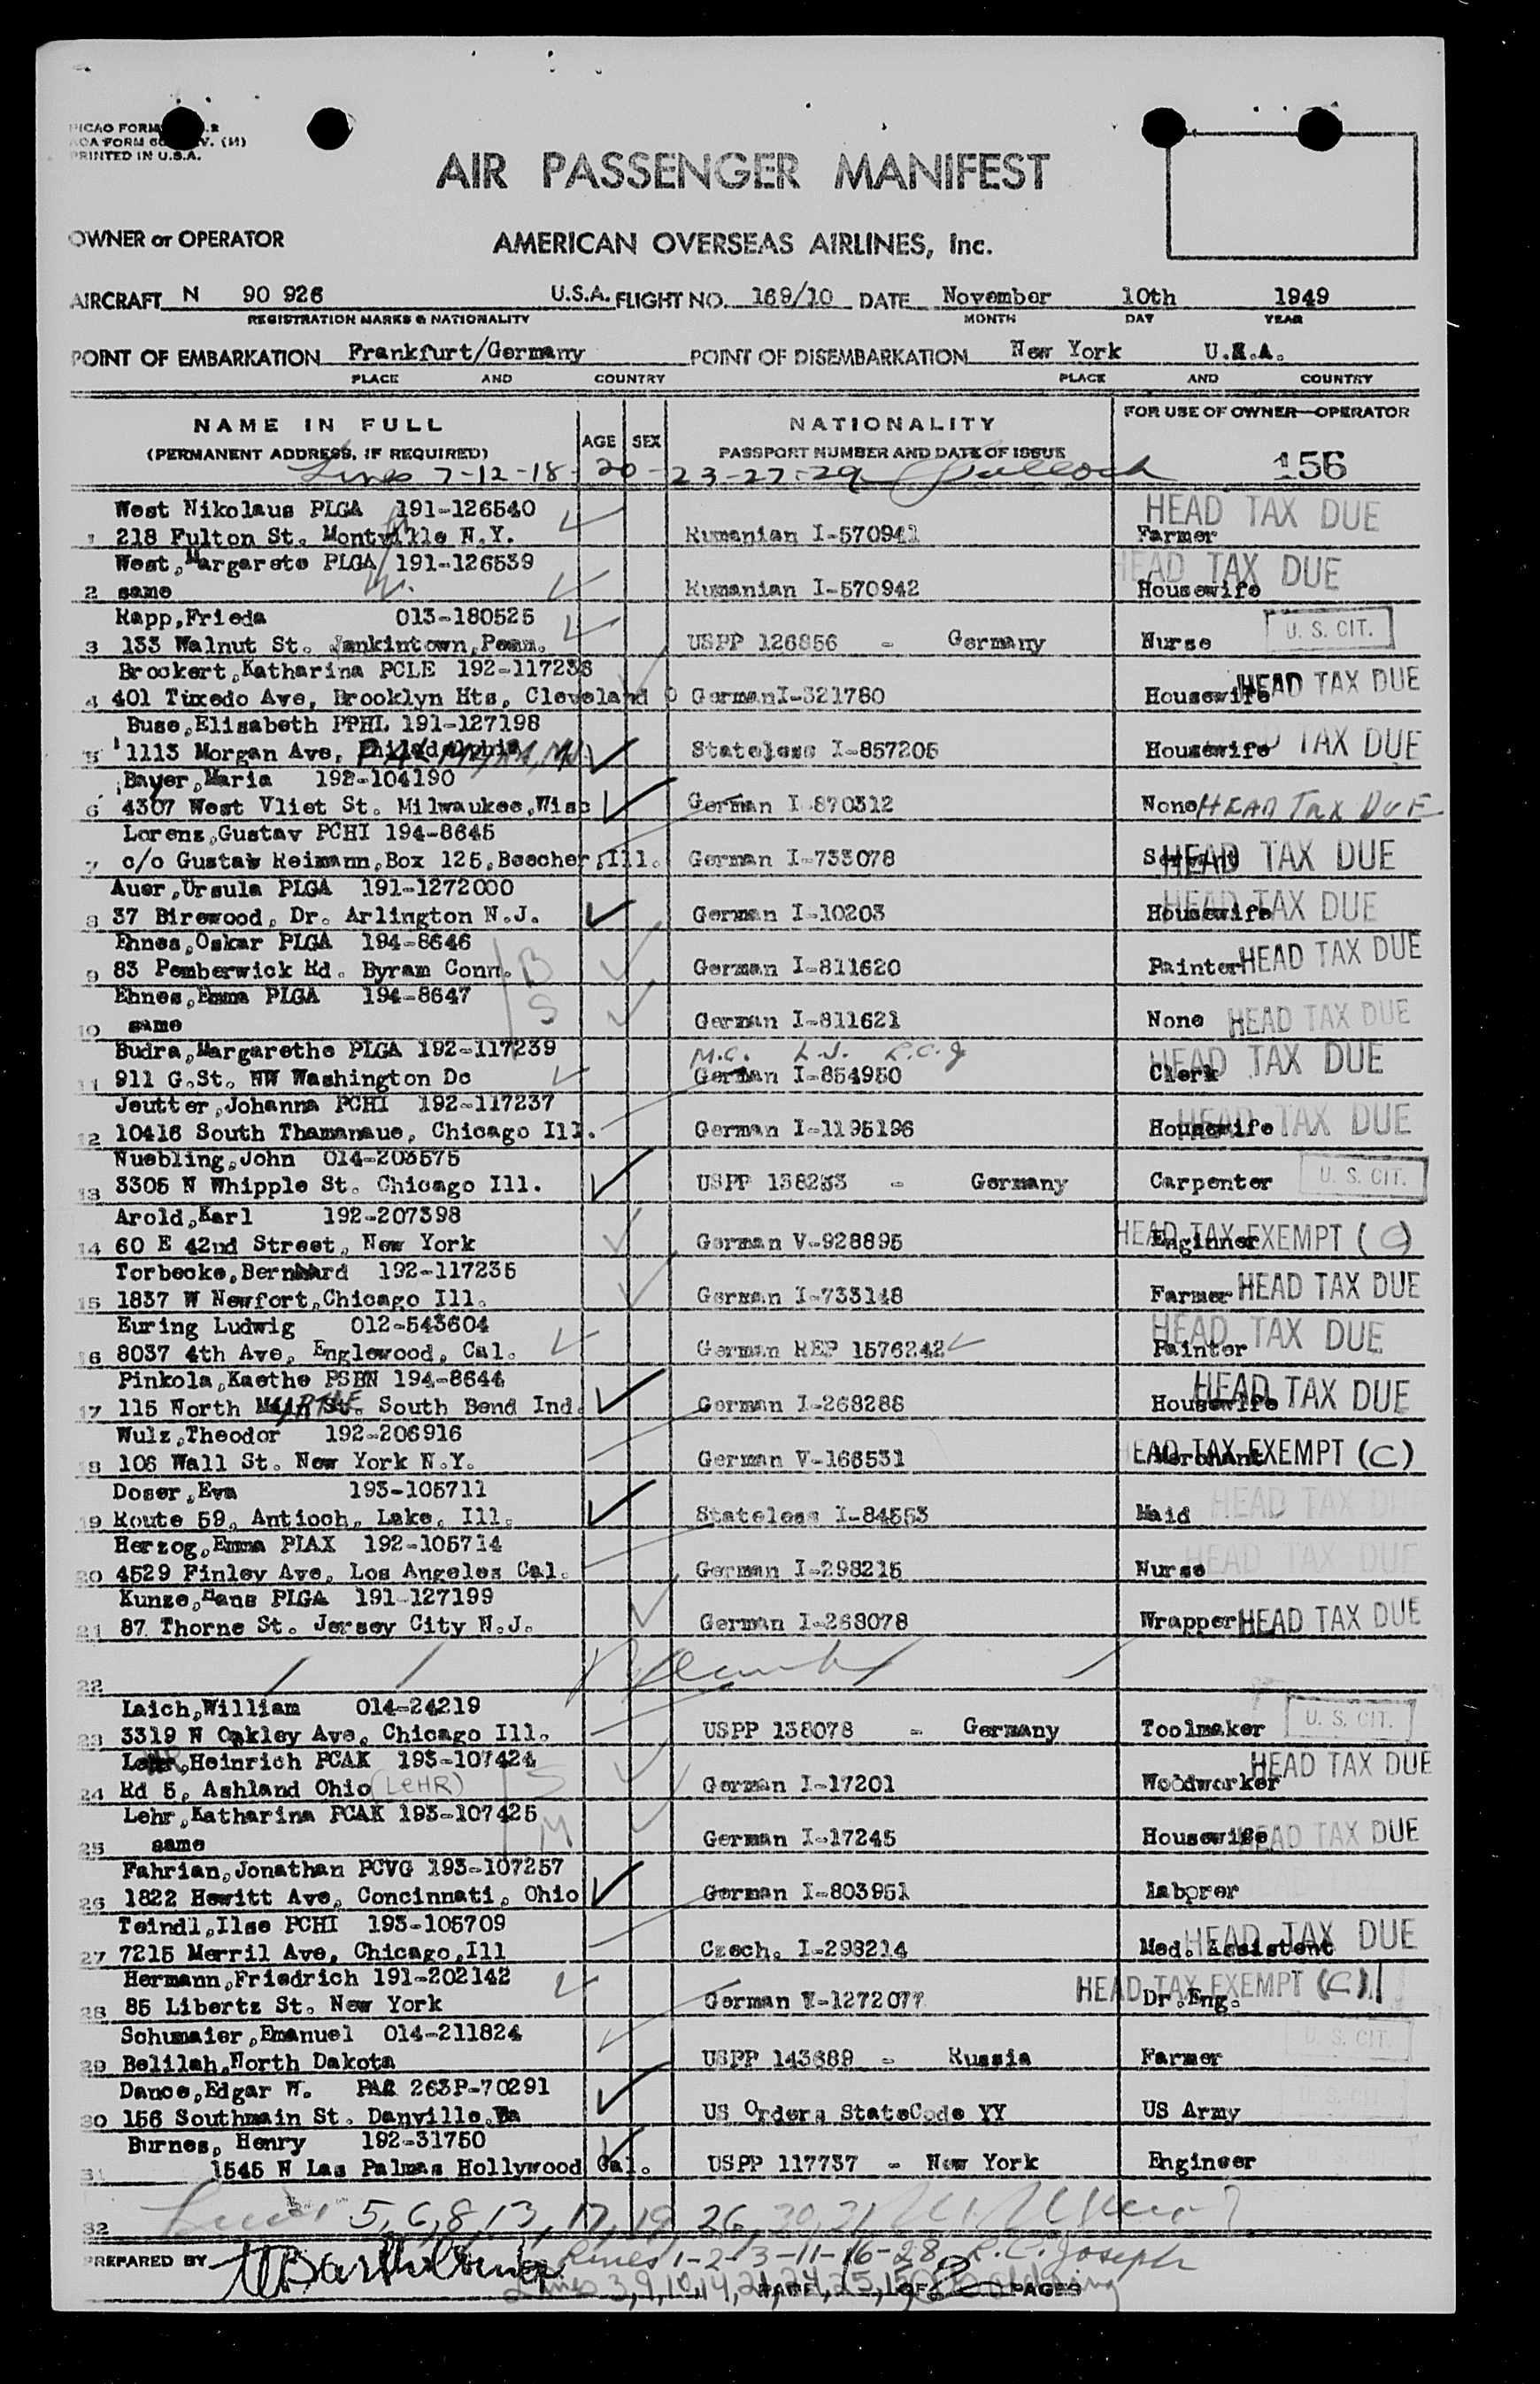 PICAO FORM
AOA FORM
PRINTED IN U.S.A.
AIR PASSENGER MANIFEST
OWNER or OPERATOR AMERICAN OVERSEAS AIRLINES, Inc.
AIRCRAFT N 90 926 U.S.A. FLIGHT NO. 169/10 DATE November 10th 1949
REGISTRATION MARKS & NATIONALITY MONTH DAY YEAR
POINT OF EMBARKATION Frankfurt/Germany POINT OF DISEMBARKATION New York U.S.A.
PLACE AND COUNTRY PLACE AND COUNTRY
NAME IN FULL AGE SEX NATIONALITY FOR USE OF OWNER-OPERATOR
(PERMANENT ADDRESS, IF REQUIRED) PASSPORT NUMBER AND DATE OF ISSUE 156
Lines 7-12-18-20-23-27-29
West Nikolaus PLGA 191-126540 HEAD TAX DUE
1 218 Fulton St. Montville N.Y. Rumanian I-570941 Farmer
West,Margarete PLGA 191-126539 HEAD TAX DUE
2 same Rumanian I-570942 Housewife
Rapp,Frieda 013-180525
3 133 Walnut St. Jenkintown,Penn. USPP 126856 - Germany Nurse U. S. CIT.
Brockert,Katharina PCLE 192-117236
4 401 Tuxedo Ave, Brooklyn Hts, Cleveland O German I-321780 Housewife HEAD TAX DUE
Buse,Elisabeth PPHL 191-127198
5 1113 Morgan Ave, Philadelphia Palmyra, N.J. Stateless I-857205 Housewife TAX DUE
Bayer,Maria 192-104190
6 4307 West Vliet St. Milwaukee,Wisc German I-870312 None HEAD TAX DUE
Lorenz,Gustav PCHI 194-8645
7 c/o Gustav Reimann,Box 125,Beecher,Ill. German I-733078 Servant HEAD TAX DUE
Auer,Ursula PLGA 191-1272000
8 37 Birewood, Dr. Arlington N.J. German I-10203 Housewife HEAD TAX DUE
Ehnes,Oskar PLGA 194-8646 B
9 83 Pemberwick Rd. Byram Conn. German I-811620 Painter HEAD TAX DUE
Ehnes,Emma PLGA 194-8647 S
10 same German I-811621 None HEAD TAX DUE
Budra,Margarethe PLGA 192-117239
11 911 G.St. NW Washington Dc German I-854950 Clerk HEAD TAX DUE
Jeutter,Johanna PCHI 192-117237
12 10416 South Thamanaue, Chicago Ill. German I-1195196 Housewife HEAD TAX DUE
Nuebling,John 014-203575
13 3305 N Whipple St. Chicago Ill. USPP 138233 - Germany Carpenter U. S. CIT.
Arold,Karl 192-207398
14 60 E 42nd Street, New York German V-928895 Enginner HEAD TAX EXEMPT (C)
Torbecke,Bernhard 192-117235
15 1837 W Newfort,Chicago Ill. German I-733148 Farmer HEAD TAX DUE
Euring Ludwig 012-543604
16 8037 4th Ave, Englewood, Cal. German REP 1576242 Painter HEAD TAX DUE
Pinkola,Kaethe PSBN 194-8644
17 115 North Myrtle St. South Bend Ind. German I-268286 Housewife HEAD TAX DUE
Wulz,Theodor 192-206916
18 106 Wall St. New York N.Y. German V-168531 Merchant HEAD TAX EXEMPT (C)
Doser,Eva 193-105711
19 Route 59, Antioch, Lake, Ill. Stateless I-84553 Maid HEAD TAX DUE
Herzog,Emma PIAX 192-105714
20 4529 Finley Ave, Los Angeles Cal. German I-298215 Nurse HEAD TAX DUE
Kunze,Hans PLGA 191-127199
21 87 Thorne St. Jersey City N.J. German I-268078 Wrapper HEAD TAX DUE
22
Laich,William 014-24219
23 3319 N Oakley Ave, Chicago Ill. USPP 138078 - Germany Toolmaker U. S. CIT.
Lehr,Heinrich PCAK 193-107424 S
24 Rd 5, Ashland Ohio (LeHR) German I-17201 Woodworker HEAD TAX DUE
Lehr,Katharina PCAK 193-107425 M
25 same German I-17245 Housewife HEAD TAX DUE
Fahrian,Jonathan PCVG 193-107257
26 1822 Hewitt Ave, Concinnati, Ohio German I-803951 Laborer
Teindl,Ilse PCHI 193-105709
27 7215 Merril Ave, Chicago,Ill Czech. I-298214 Med. Assistent HEAD TAX DUE
Hermann,Friedrich 191-202142
28 85 Libertz St. New York German V-1272077 Dr.Eng. HEAD TAX EXEMPT (C)
Schumaier,Emanuel 014-211824
29 Belilah,North Dakota USPP 143689 - Russia Farmer U. S. CIT.
Dance,Edgar W. PAR 263P-70291
30 156 Southmain St. Danville,Va US Orders StateCode YY US Army
Burnes, Henry 192-31750
31 1545 N Las Palmas Hollywood Cal. USPP 117737 - New York Engineer
32 Lines 5,6,8,13,17,19,26,30,31
PREPARED BY Lines 1-2-3-11-16-28 R.C. Joseph
PAGE 1 OF 2 PAGES